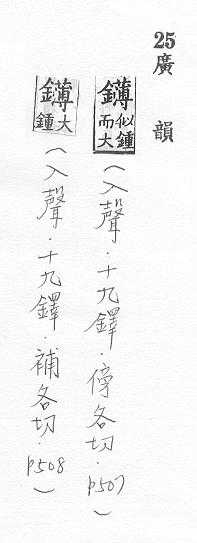 25 廣韻
鑮 似鍾而大(入聲．十九鐸．傍各切．p507)
鑮 大鍾(入聲．十九鐸．補各切．p508)